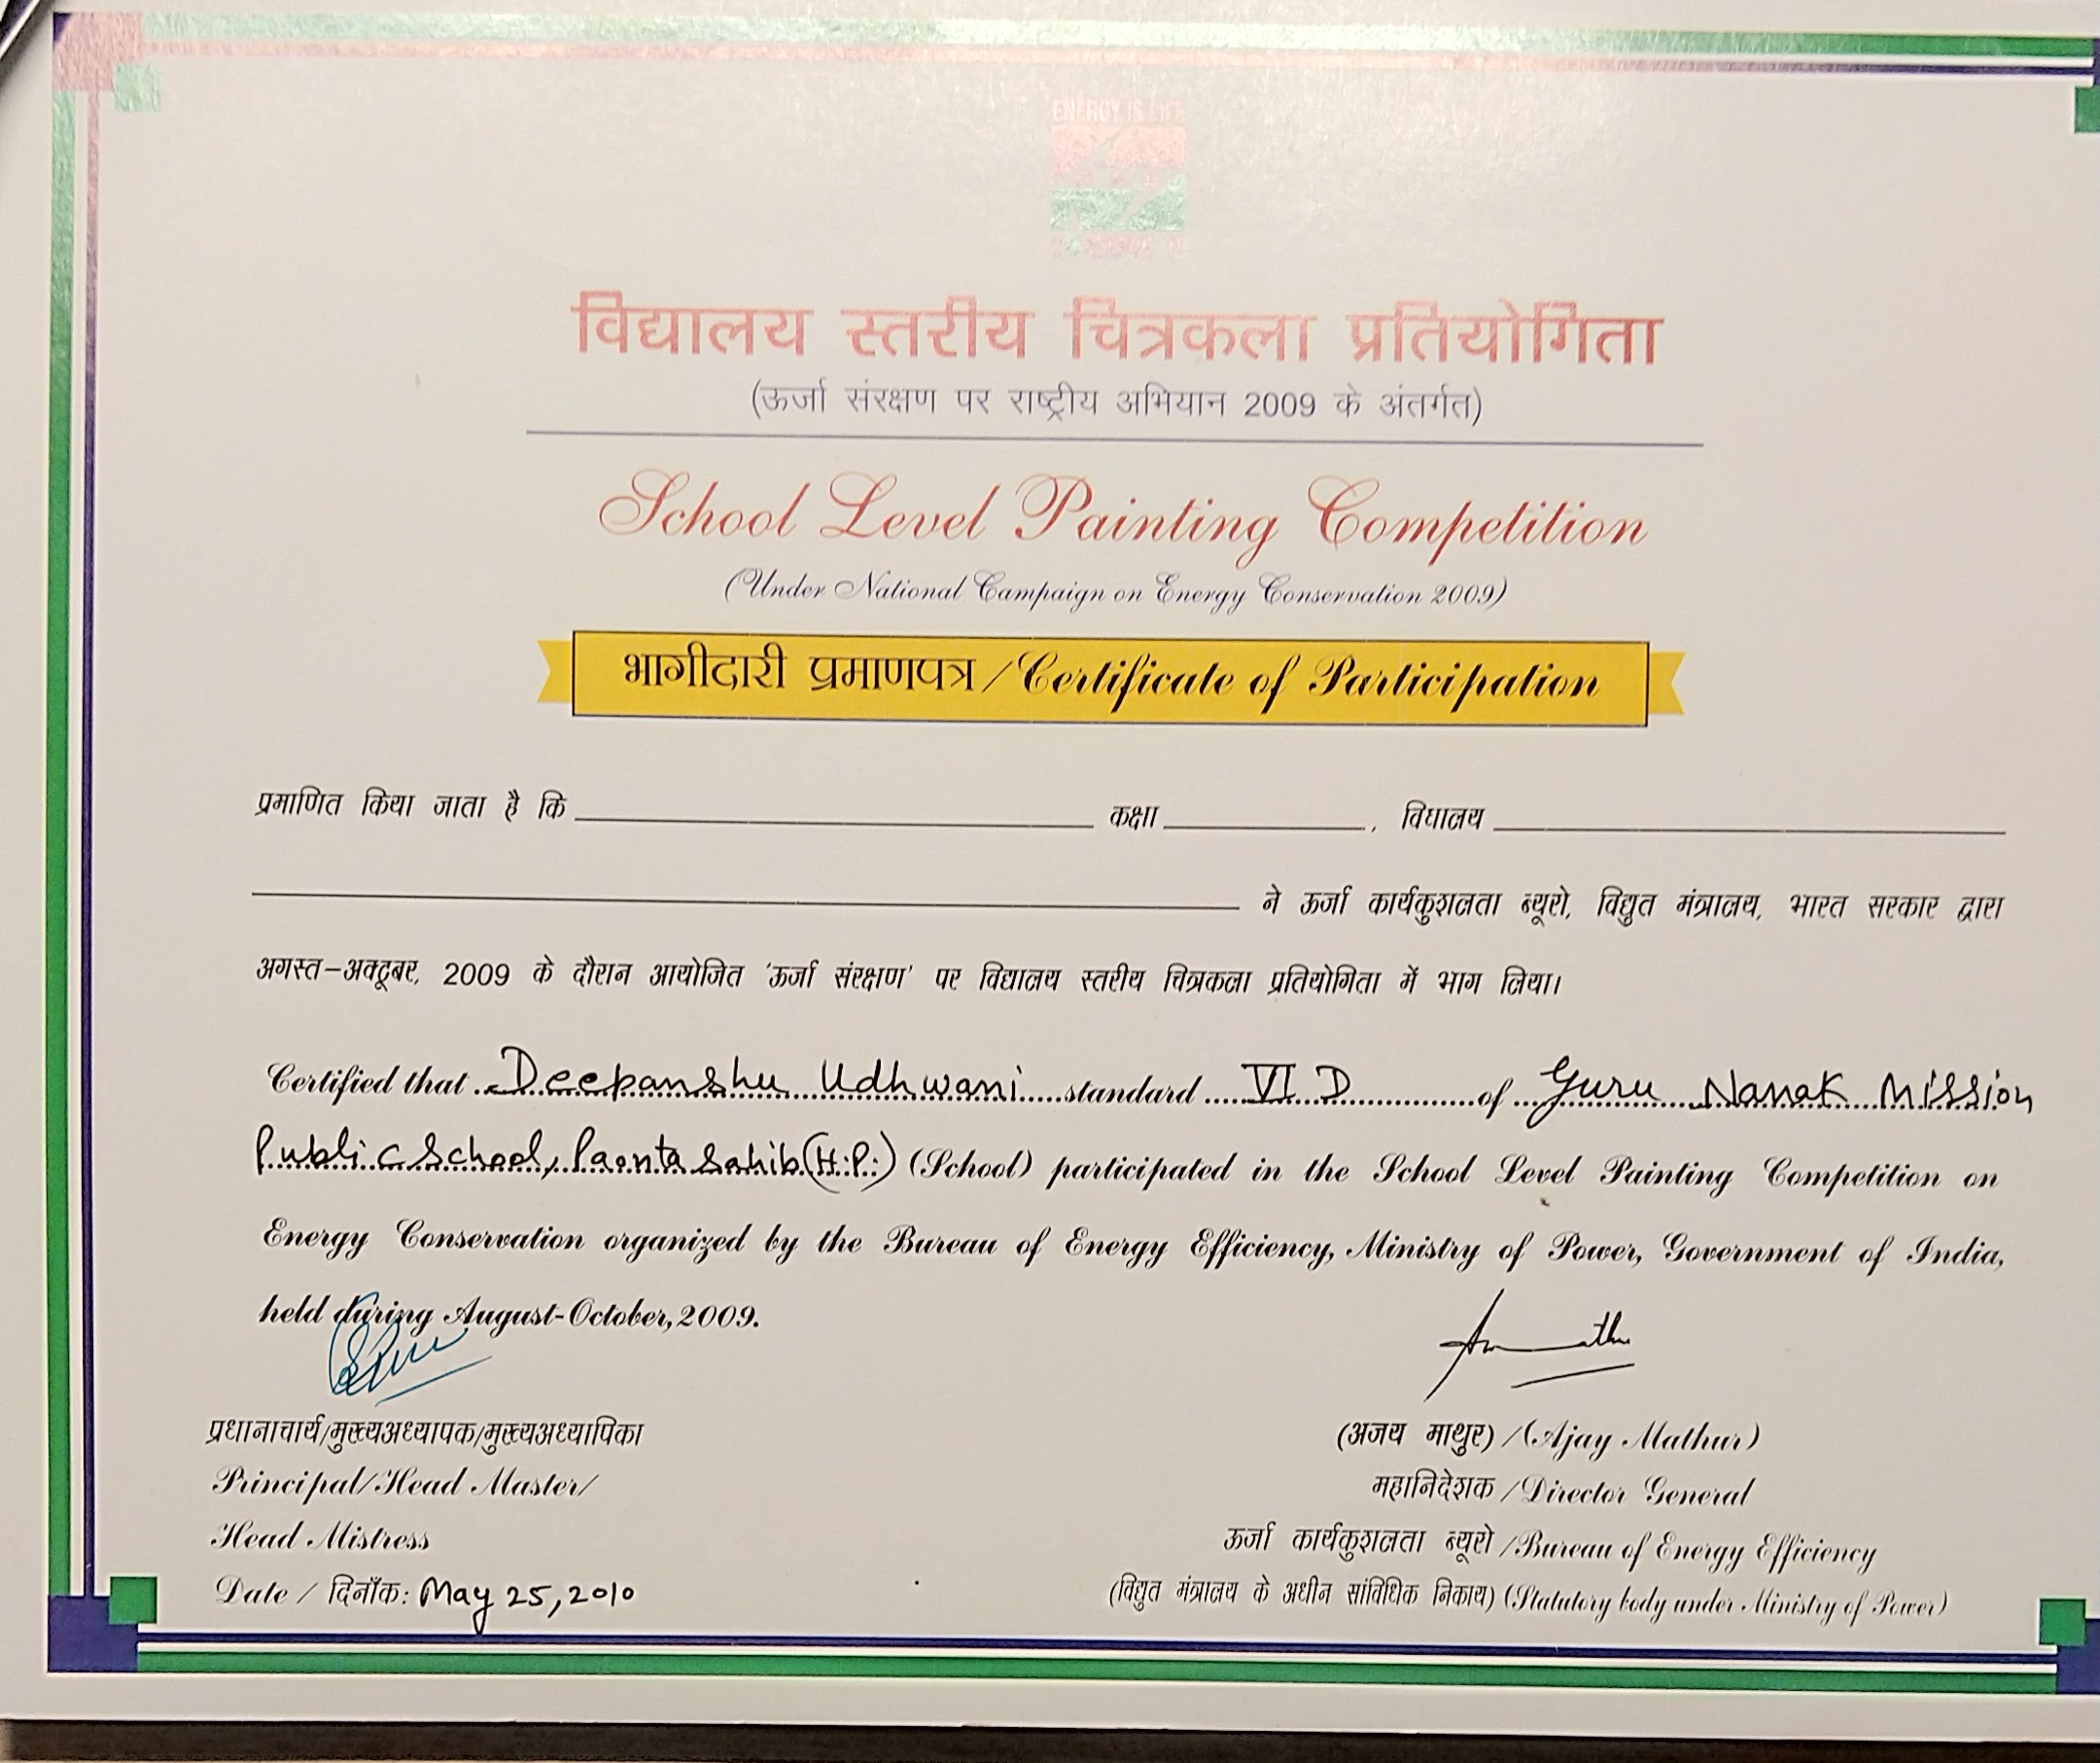 ENERGY IS LIFE
विद्यालय स्तरीय चित्रकला प्रतियोगिता
(ऊर्जा संरक्षण पर राष्ट्रीय अभियान 2009 के अंतर्गत)
School Level Painting Competition
(Under National Campaign on Energy Conservation 2009)
भागीदारी प्रमाणपत्र/Certificate of Participation
प्रमाणित किया जाता है कि कक्षा , विद्यालय
ने ऊर्जा कार्यकुशलता ब्यूरो, विद्युत मंत्रालय, भारत सरकार द्वारा
अगस्त-अक्टूबर, 2009 के दौरान आयोजित 'ऊर्जा संरक्षण' पर विद्यालय स्तरीय चित्रकला प्रतियोगिता में भाग लिया।
Certified that Deepanshu Udhwani standard VI D of Guru Nanak Mission
Public School, Paonta Sahib (H.P.) (School) participated in the School Level Painting Competition on
Energy Conservation organized by the Bureau of Energy Efficiency, Ministry of Power, Government of India,
held during August-October, 2009.
प्रधानाचार्य/मुख्यअध्यापक/मुख्यअध्यापिका
(अजय माथुर) /(Ajay Mathur)
Principal/Head Master/
महानिदेशक /Director General
Head Mistress
ऊर्जा कार्यकुशलता ब्यूरो /Bureau of Energy Efficiency
Date / दिनाँक: May 25, 2010
(विद्युत मंत्रालय के अधीन सांविधिक निकाय) (Statutory body under Ministry of Power)